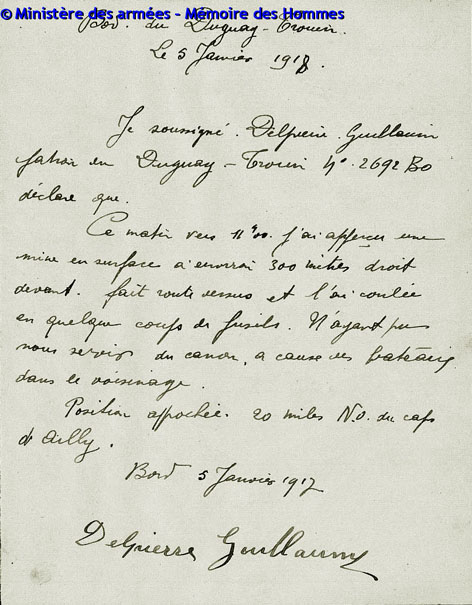 © Ministère des armées - Mémoire des Hommes
Bord du Duguay-Trouin.
Le 5 Janvier 1918.
Je soussigné. Delpierre Guillaume
patron du Duguay-Trouin N° 2692 Bo
déclare que.
Ce matin vers 11h00. j'ai apperçu une
mine en surface a environ 300 mètres droit
devant. fait route dessus et l'ai coulée
en quelque coups de fusils. N'ayant pu
nous servir du canon, a cause des bateaux
dans le voisinage.
Position approchée. 20 miles N.O. du cap
d'Ailly.
Bord 5 Janvier 1917
Delpierre Guillaume